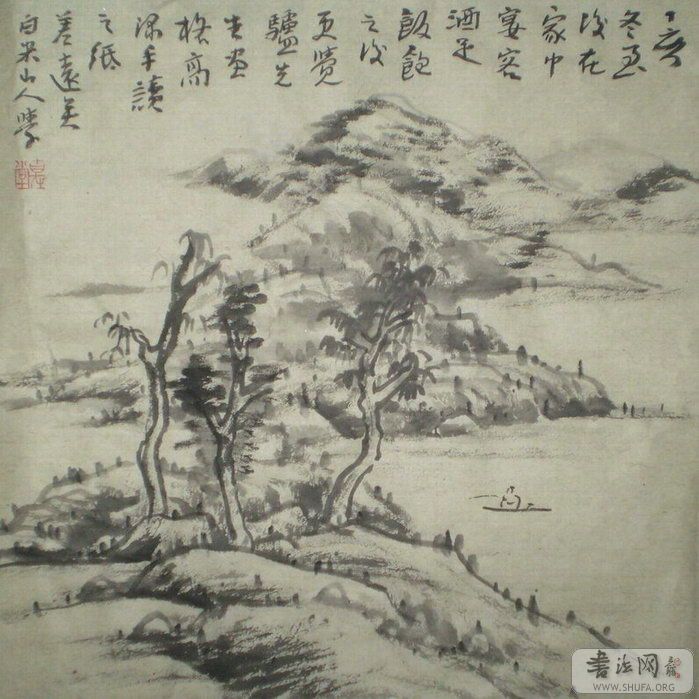 丁亥
冬至
後在
家中
宴客
酒足
飯飽
之後
更覺
驢先
生畫
格高
手讀
之紙
差遠矣
山人學
书法网
WWW.SHUFA.ORG